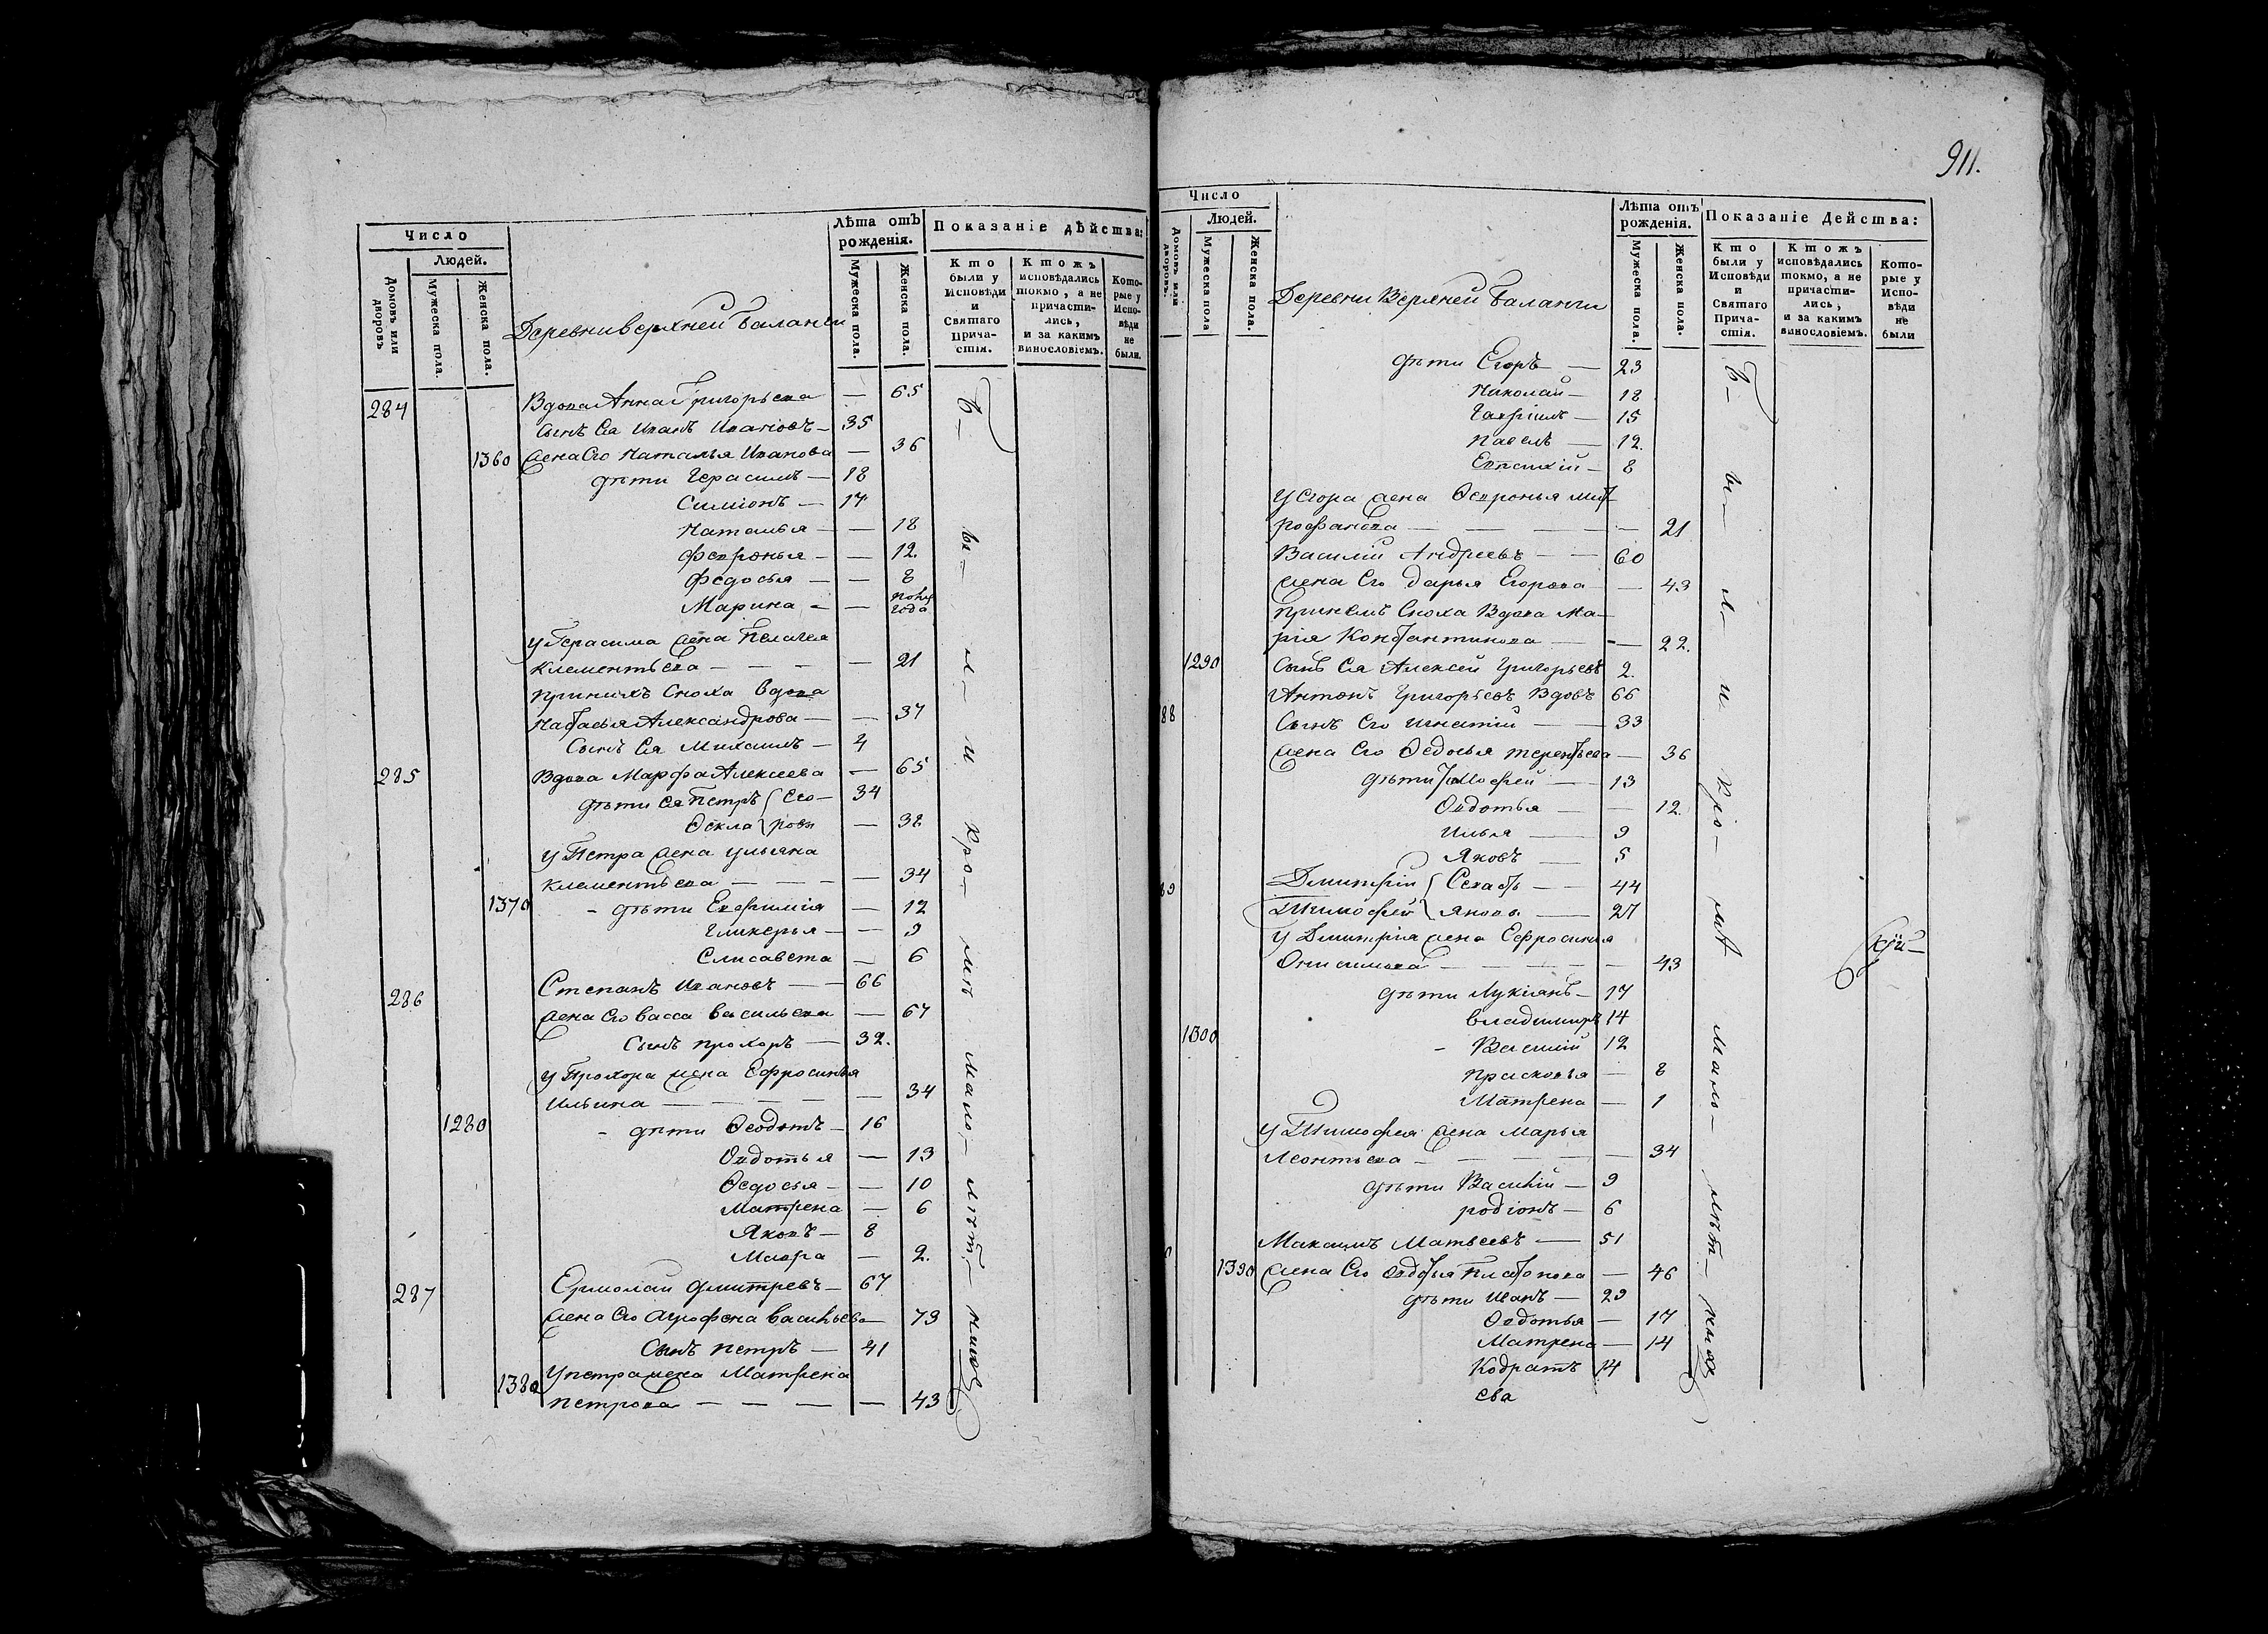 Число
Людей.
Домовъ или дворовъ
Мужеска пола.
Женска пола.
Деревни верхней Баланки
Лѣта отъ рожденія.
Мужеска пола.
Женска пола.
Показаніе дѣйства:
Кто были у Исповѣди и Святаго Прича-стія.
Ктожъ исповѣдались токмо, а не причасти-лись, и за какимъ винословіемъ.
Кото-рые у Испо-вѣди не были.
284 Вдова Анна Григорьева — 65
Сынъ Ея Иванъ Ивановъ — 35
1360 жена Его Наталья Иванова — 36
дѣти Герасимъ — 18
Симіонъ — 17
Наталья — — 18
Февронья — — 12.
Федосья — — 8
Марина — — полу года
у Герасима жена Пелагея
Клементьева — — — — 21
При нихъ Сноха вдова
Настасья Александрова — — 37
Сынъ Ея Михаилъ — 4
285 Вдова Марфа Алексеева — 65
дѣти ея Петръ Его— 34
Ѳекла ровы — 38
у Петра жена ульяна
Клементьева — — — — 34
1370 - дѣти Евфимія — 12
Гликерья — — 9
Елисавета — 6
286 Степанъ Ивановъ — — 66
жена Его Васса Васильева — 67
Сынъ Прохоръ — 32.
у Прохора жена Ефросинья
Ильина — — — — — 34
1280 - дѣти Ѳеодотъ — 16
Овдотья — 13
Ѳедосья — — 10
Матрена — 6
Яковъ — 8
Мавра — 2.
287 Ермолай Дмитревъ — 67
жена Его Агрофена Васильева — 73
Сынъ Петръ — 41
1380 У петра жена Матрена
Петрова — — — — — 43
бы-
ли
и
кро-
мѣ
мало-
лѣт-
нихъ
911.
Число
Людей.
Домовъ или дворовъ.
Мужеска пола
Женска пола.
Деревни Верхней Баланки
Лѣта отъ рожденія.
Мужеска пола.
Женска пола.
Показаніе Действа:
Кто были у Исповѣди и Святаго Прича-стія.
Ктожъ исповѣдались токмо, а не причасти-лись, и за какимъ винословіемъ.
Кото-рые у Испо-вѣди не были
дѣти Егоръ — 23
Николай — 18
Гаврилъ — 15
Павелъ — 12.
8
У Егора жена Февронья Мит-
рофанова — — — — — 21
Василій Андреевъ — — 60
жена Его Дарья Егорова — 43
При немъ Сноха Вдова Ма-
рія Константинова — — 22.
1290 Сынъ Ея Алексей Григорьевъ 2.
88 Антонъ Григорьевъ Вдовъ 66
Сынъ Его Игнатій — — 33
жена Его Ѳедосья Терентьева — 36
дѣти Тимофей — — 13
Овдотья — — 12.
Илья — 9
Яковъ — 5
89 Дмитрій Севасть — — 44
Тимофей янова — 27
У Дмитрія жена Ефросинья
Онисимова — — — — — 43
дѣти Лукіянъ — 17
Владимиръ 14
1300 - Василий 12
Прасковья — 8
Матрена — 1
У Тимофея жена Марья
Леонтьева — — — — — 34
дѣти Василій — 9
родіонъ — 6
Максимъ Матвеевъ — 51
1390 жена Его Овдотья Платонова — 46
дѣти Иванъ — 29
Овдотья — 17
Матрена — 14
Кодратъ 14
ева
бы-
ли
и
кро-
мѣ
мало-
лѣт-
нихъ